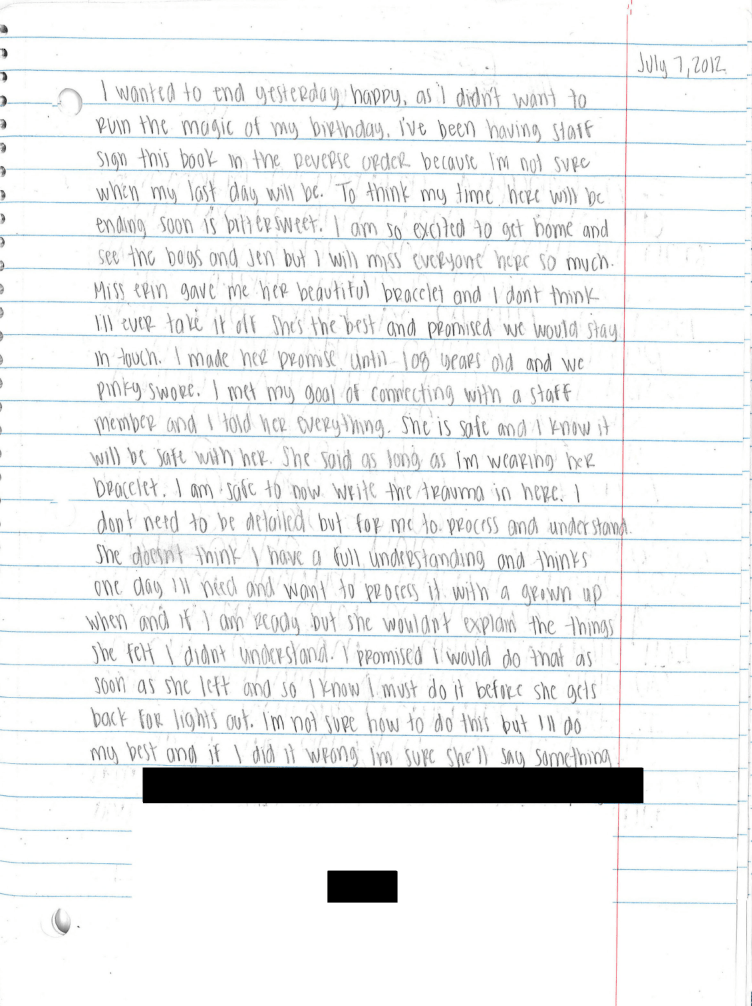 July 7, 2012
I wanted to end yesterday happy, as I didn't want to
ruin the magic of my birthday. i've been having staff
sign this book in the reverse order because Im not sure
when my last day will be. To think my time here will be
ending soon is bittersweet. I am so excited to get home and
see the boys and Jen but I will miss everyone here so much.
Miss Erin gave me her beautiful bracelet and I dont think
I'll ever take it off She's the best and promised we would stay
in touch. I made her promise until 108 years old and we
pinky swore. I met my goal of connecting with a staff
member and I told her everything. She is safe and I know it
will be safe with her. She said as long as I'm wearing her
bracelet, I am safe to now write the trauma in here. I
dont need to be detailed but for me to process and understand.
She doesnt think I have a full understanding and thinks
one day I'll need and want to process it with a grown up
when and if I am ready but she wouldnt explain the things
she felt I didnt understand. I promised i would do that as
soon as she left and so I know I must do it before she gets
back for lights out. i'm not sure how to do this but I'll do
my best and if I did it wrong im sure she'll say something